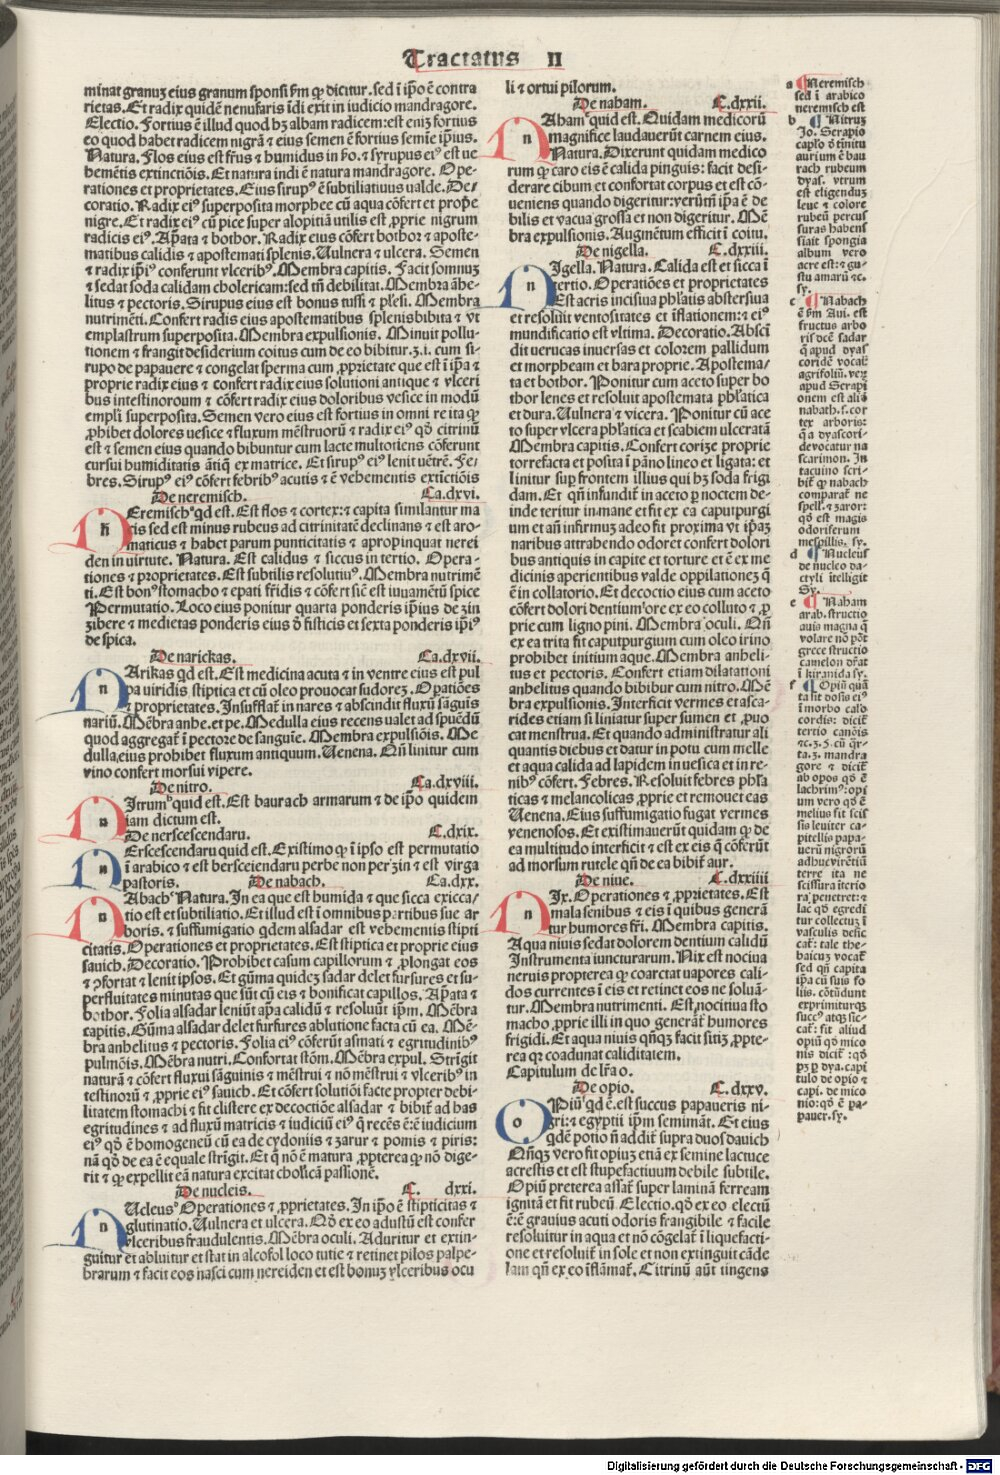 Tractatus II
minat granuz eius granum sponsi ẜm ꝙ dicitur. sed ī ip̄o ē contra
rietas. Et radix quidē nenufaris īdi exit in iudicio mandragore.
Electio. Fortius ē illud quod hꝫ albam radicem: est enīz fortius
eo quod habet radicem nigrā ⁊ eius semen ē fortius semīe ip̄ius.
Natura. Flos eius est fr̄us ⁊ humidus in ẜo. ⁊ syrupus eiꝰ est ue
hemētis extinctiōis. Et natura indi ē natura mandragore. Ope-
rationes et proprietates. Eius sirupꝰ ē subtiliatiuus ualde. De/
coratio. Radix eiꝰ superposita morphee cū aqua cōfert et prop̄e
nigre. Et radix eiꝰ cū pice super alopitiā utilis est ꝓprie nigrum
radicis eiꝰ. Ap̄ata ⁊ bothor. Radix eius cōfert bothor ⁊ aposte-
matibus calidis ⁊ apostemati splenis. Uulnera ⁊ ulcera. Semen
⁊ radix ip̄iꝰ conferunt vlceribꝰ. Membra capitis. Facit somnuz
⁊ sedat soda calidam cholericam: sed tn̄ debilitat. Membra āhe-
litus ⁊ pectoris. Sirupus eius est bonus tussi ⁊ pl̄esi. Membra
nutrimēti. Confert radis eius apostematibus splenis bibita ⁊ vt
emplastrum superposita. Membra expulsionis. Minuit pollu-
tionem ⁊ frangit desiderium coitus cum de eo bibitur. ʒ. i. cum si-
rupo de papauere ⁊ congelat sperma cum ꝓprietate que est ī ip̄a ⁊
proprie radix eius ⁊ confert radix eius solutioni antique ⁊ vlceri
bus intestinorum ⁊ cōfert radix eius doloribus vesice in modū
empl̄i superposita. Semen vero eius est fortius in omni re ita ꝙ
ꝓhibet dolores uesice ⁊ fluxum mēstruorū ⁊ radix eiꝰ qd̄ citrinū
est ⁊ semen eius quando bibuntur cum lacte multotiens cōferunt
cursui humiditatis ātiq̄ ex matrice. Et sirupꝰ eiꝰ lenit uētrē. Fe/
bres. Sirupꝰ eiꝰ cōfert febribꝰ acutis ⁊ ē vehementis extictiōis
De neremisch. Ca. dxvi.
NEremisch qd est. Est flos ⁊ cortex: ⁊ capita similantur ma
cis sed est minus rubeus ad citrinitatē declinans ⁊ est aro-
maticus ⁊ habet parum punticitatis ⁊ apropinquat nerei
den in uirtute. Natura. Est calidus ⁊ siccus in tertio. Opera-
tiones ⁊ proprietates. Est subtilis resolutiuꝰ. Membra nutrimē
ti. Est bonꝰ stomacho ⁊ epati fr̄idis ⁊ cōfert sic̄ est iuuamētū spice
Permutatio. Loco eius ponitur quarta ponderis ip̄ius de zin
zibere ⁊ medietas ponderis eius ō fisticis et sexta ponderis ip̄iꝰ
de spica.
De narickas. Ca. dxvii.
NArikas qd est. Est medicina acuta ⁊ in ventre eius est pul
pa uiridis stiptica et cū oleo prouocat sudorez. Opatiōes
⁊ proprietates. Insufflat̄ in nares ⁊ abscindit fluxū sāguis
nariū. Mēbra anhe. et pe. Medulla eius recens ualet ad spuēdū
quod aggregat̄ ī pectore de sanguīe. Membra expulsiōis. Me
dulla eius prohibet fluxum antiquum. Uenena. Qn̄ linitur cum
vino confert morsui vipere.
De nitro. Ca. dxviii.
NItrum quid est. Est baurach armarum ⁊ de ip̄o quidem
iam dictum est.
De nerscescendaru. C. dxix.
NErscescendaru quid est. Existimo ꝙ ī ipso est permutatio
ī arabico ⁊ est bersceiendaru perbe non per zin ⁊ est virga
pastoris. De nabach. Ca. dxx.
NAbach Natura. In ea que est humida ⁊ que sicca exicca/
tio est et subtiliatio. Et illud est ī omnibus partibus sue ar
boris. ⁊ suffumigatio qdem alsadar est vehementis stipti
citatis. Operationes et proprietates. Est stiptica et proprie eius
sauich. Decoratio. Prohibet casum capillorum ⁊ ꝓlongat eos
⁊ ꝯfortat ⁊ lenit ipsos. Et gūma quidez sadar delet furfures et su-
perfluitates minutas que sūt cū eis ⁊ bonificat capillos. Ap̄ata ⁊
bothor. Folia alsadar leniūt ap̄a calidū ⁊ resoluūt ip̄m. Mēbra
capitis. Gūma alsadar delet furfures ablutione facta cū ea. Mē-
bra anhelitus ⁊ pectoris. Folia eiꝰ cōferūt asmati ⁊ egritudinibꝰ
pulmōis. Mēbra nutri. Confortat stōm. Mēbra expul. Strīgit
naturā ⁊ cōfert fluxui sāguinis ⁊ mēstrui ⁊ nō mēstrui ⁊ vlceribꝰ in
testinorū ⁊ ꝓprie eiꝰ sauich. Et cōfert solutiōi facte propter debi-
litatem stomachi ⁊ fit clistere ex decoctiōe alsadar ⁊ bibit̄ ad has
egritudines ⁊ ad fluxū matricis ⁊ iudiciū eiꝰ q̄ recēs ē: ē iudicium
eiꝰ qd̄ ē homogeneū cū ea de cydoniis ⁊ zarur ⁊ pomis ⁊ piris:
nā qd̄ de ea ē equale strīgit. Et q̄ nō ē matura ꝓpterea ꝙ nō dige-
rit ⁊ ꝙ expellit eā natura excitat cholicā passionē.
De nucleis. C. dxxi.
NUcleus Operationes ⁊ ꝓprietates. In ip̄o ē stipticitas ⁊
glutinatio. Uulnera et ulcera. Qd̄ ex eo adustū est confer
vlceribus fraudulentis. Mēbra oculi. Aduritur et extin-
guitur et abluitur et stat in alcofol loco tutie ⁊ retinet pilos palpe-
brarum ⁊ facit eos nasci cum nereiden et est bonuz vlceribus ocu
li ⁊ ortui pilorum.
De naham. C. dxxii.
NAham quid est. Quidam medicorū
magnifice laudauerūt carnem eius.
Natura. Dixerunt quidam medico
rum ꝙ caro eis ē calida pinguis: facit desi-
derare cibum et confortat corpus et est cō-
ueniens quando digeritur: verūtn̄ ip̄a ē de
bilis et vacua grossa et non digeritur. Mē
bra expulsionis. Augmētum efficit ī coitu.
De nigella. C. dxxiii.
NIgella. Natura. Calida est et sicca ī
tertio. Operatiōes et proprietates
Est acris incisiua phl̄atis abstersiua
et resoluit ventositates et īflationem: ⁊ eiꝰ
mundificatio est vltima. Decoratio. Absci
dit uerucas inuersas et colorem pallidum
et morpheam et bara proprie. Apostema/
ta et bothor. Ponitur cum aceto super bo
thor lenes et resoluit apostemata phl̄atica
et dura. Uulnera ⁊ vlcera. Ponitur cū ace
to super vlcera phl̄atica et scabiem ulceratā
Membra capitis. Confert corize proprie
torrefacta et posita ī pāno lineo et ligata: et
linitur sup frontem illius qui hꝫ soda frigi
dam. Et qn̄ infundit̄ in aceto p noctem de-
inde teritur in mane et fit ex ea caputpurgi
um et añ infirmuz adeo fit proxima vt ip̄az
naribus attrahendo odoret confert dolori
bus antiquis in capite et torture et ē ex me
dicinis aperientibus valde oppilationez q̄
ē in collatorio. Et decoctio eius cum aceto
cōfert dolori dentium ore ex eo colluto ⁊ ꝓ
prie cum ligno pini. Membra oculi. Qn̄
ex ea trita fit caputpurgium cum oleo irino
prohibet initium aque. Membra anheli-
tus et pectoris. Confert etiam dilatationi
anhelitus quando bibibur cum nitro. Mē
bra expulsionis. Interficit vermes et asca-
rides etiam si liniatur super sumen et ꝓuo
cat menstrua. Et quando administratur ali
quantis diebus et datur in potu cum melle
et aqua calida ad lapidem in uesica et in re-
nibꝰ cōfert. Febres. Resoluit febres phl̄a
ticas ⁊ melancolicas ꝓprie et remouet eas
Uenena. Eius suffumigatio fugat vermes
venenosos. Et existimauerūt quidam ꝙ de
ea multitudo interficit ⁊ est ex eis q̄ cōferūt
ad morsum rutele qn̄ de ea bibit̄ aur.
De niue. C. dxxiiii
NIx. Operationes ⁊ ꝓprietates. Est
mala senibus ⁊ eis ī quibus generā
tur humores fri. Membra capitis.
Aqua niuis sedat dolorem dentium calidū
Instrumenta iuncturarum. Nix est nociua
neruis propterea ꝙ coarctat uapores cali-
dos currentes ī eis et retinet eos ne soluā-
tur. Membra nutrimenti. Est nocitiua sto
macho ꝓprie illi in quo generāt̄ humores
frigidi. Et aqua niuis qn̄qꝫ facit sitiz ꝓpte-
rea qꝫ coadunat caliditatem.
Capitulum de lr̄a o.
De opio. C. dxxv.
OPiū qd ē. est succus papaueris ni-
gri: ⁊ egyptii ip̄m semināt. Et eius
qdē potio n̄ addit̄ supra duos dauich
Qn̄qꝫ vero fit opiuz etiā ex semine lactuce
acrestis et est stupefactiuum debile subtile.
Opiū preterea assat̄ super laminā ferream
ignitā et fit rubeū. Electio. qd̄ ex eo electū
ē: ē grauius acuti odoris frangibile ⁊ facile
resoluitur in aqua et nō cōgelat̄ ī liquefacti-
one et resoluit̄ in sole et non extinguit cāde
lam qn̄ ex eo īflāmat̄. Citrinū aūt tingens
a Neremisch
sed ī arabico
neremisch est
b Nitruz
Jo. Serapio
caplo ō tinitu
aurium ē bau
rach rubeum
dyas. vtrum
est eligendus
leue ⁊ colore
rubeū percus
suras habens
siāit spongia
album vero
acre est: ⁊ gu-
stu amarū ⁊c.
sy.
c Nabach
ē ẜm Aui. est
fructus arbo
ris dcē sadar
q̄ apud dyas
coridē vocat̄
agrifoliū. vez
apud Serapi
onem est aliō
nabath. s. cor
tex arboris:
q̄ a dyascori-
de vocatur na
scarimon. In
tacuino scri-
bit̄ ꝙ nabach
comparat̄ ne
spell. ⁊ zaror:
qd̄ est magis
odoriferum
mespillis. sy.
d Nucleus
de nucleo da-
ctyli ītelligit
Sy.
e Naham
arab. structio
auis magna q̄
volare nō pōt
grece structio
camelon dr̄at
ī kiranida sy.
f Opiū quā
ta sit dosis eiꝰ
ī morbo calo
cordis: dicit̄
tertio canōis
⁊ c. 3. 5. cū q̄r-
ta. 3. mandra
gore ⁊ dicit̄
ab opos qd̄ ē
lachrimꝰ: opi
um vero qd̄ ē
melius fit scis
sis leuiter ca-
pitellis papa-
uerū nigrorū
adhuc virētiū
terre ita ne
scissura īterio
ra penetret: ⁊
lac qd̄ egredi
tur collectuz ī
vasculis desic
cat̄: tale the-
baicuz vocat̄
sed qn̄ capita
ip̄a cū suis fo
liis. cōtūdunt
exprimiturqꝫ
succꝰ atqꝫ sic-
cat̄: fit aliud
opiū qd̄ mico
nis dicit̄: qd̄
pꝫ p dya. capi
tulo de opio ⁊
capi. de mico
nio: qd̄ ē pa-
pauer. sy.
Digitalisierung gefördert durch die Deutsche Forschungsgemeinschaft - DFG